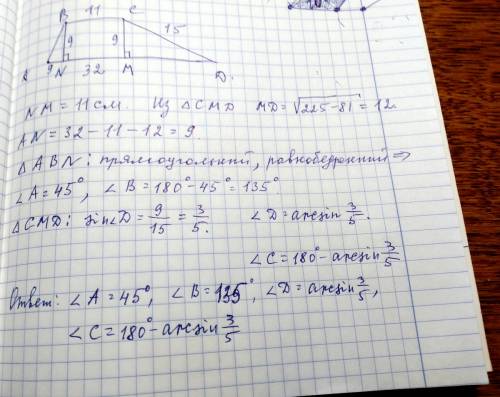 B 11 C
15
9 9
A 9 N 32 M D.
NM = 11 см. Из △CMD MD = √225-81 = 12
AN = 32 - 11 - 12 = 9.
△ABN: прямоугольный, равнобедренный ⇒
∠A = 45°, ∠B = 180° - 45° = 135°
△CMD: sin∠D = 9/15 = 3/5. ∠D = arcsin 3/5.
∠C = 180° - arcsin 3/5
Ответ: ∠A = 45°, ∠B = 135°, ∠D = arcsin 3/5,
∠C = 180° - arcsin 3/5